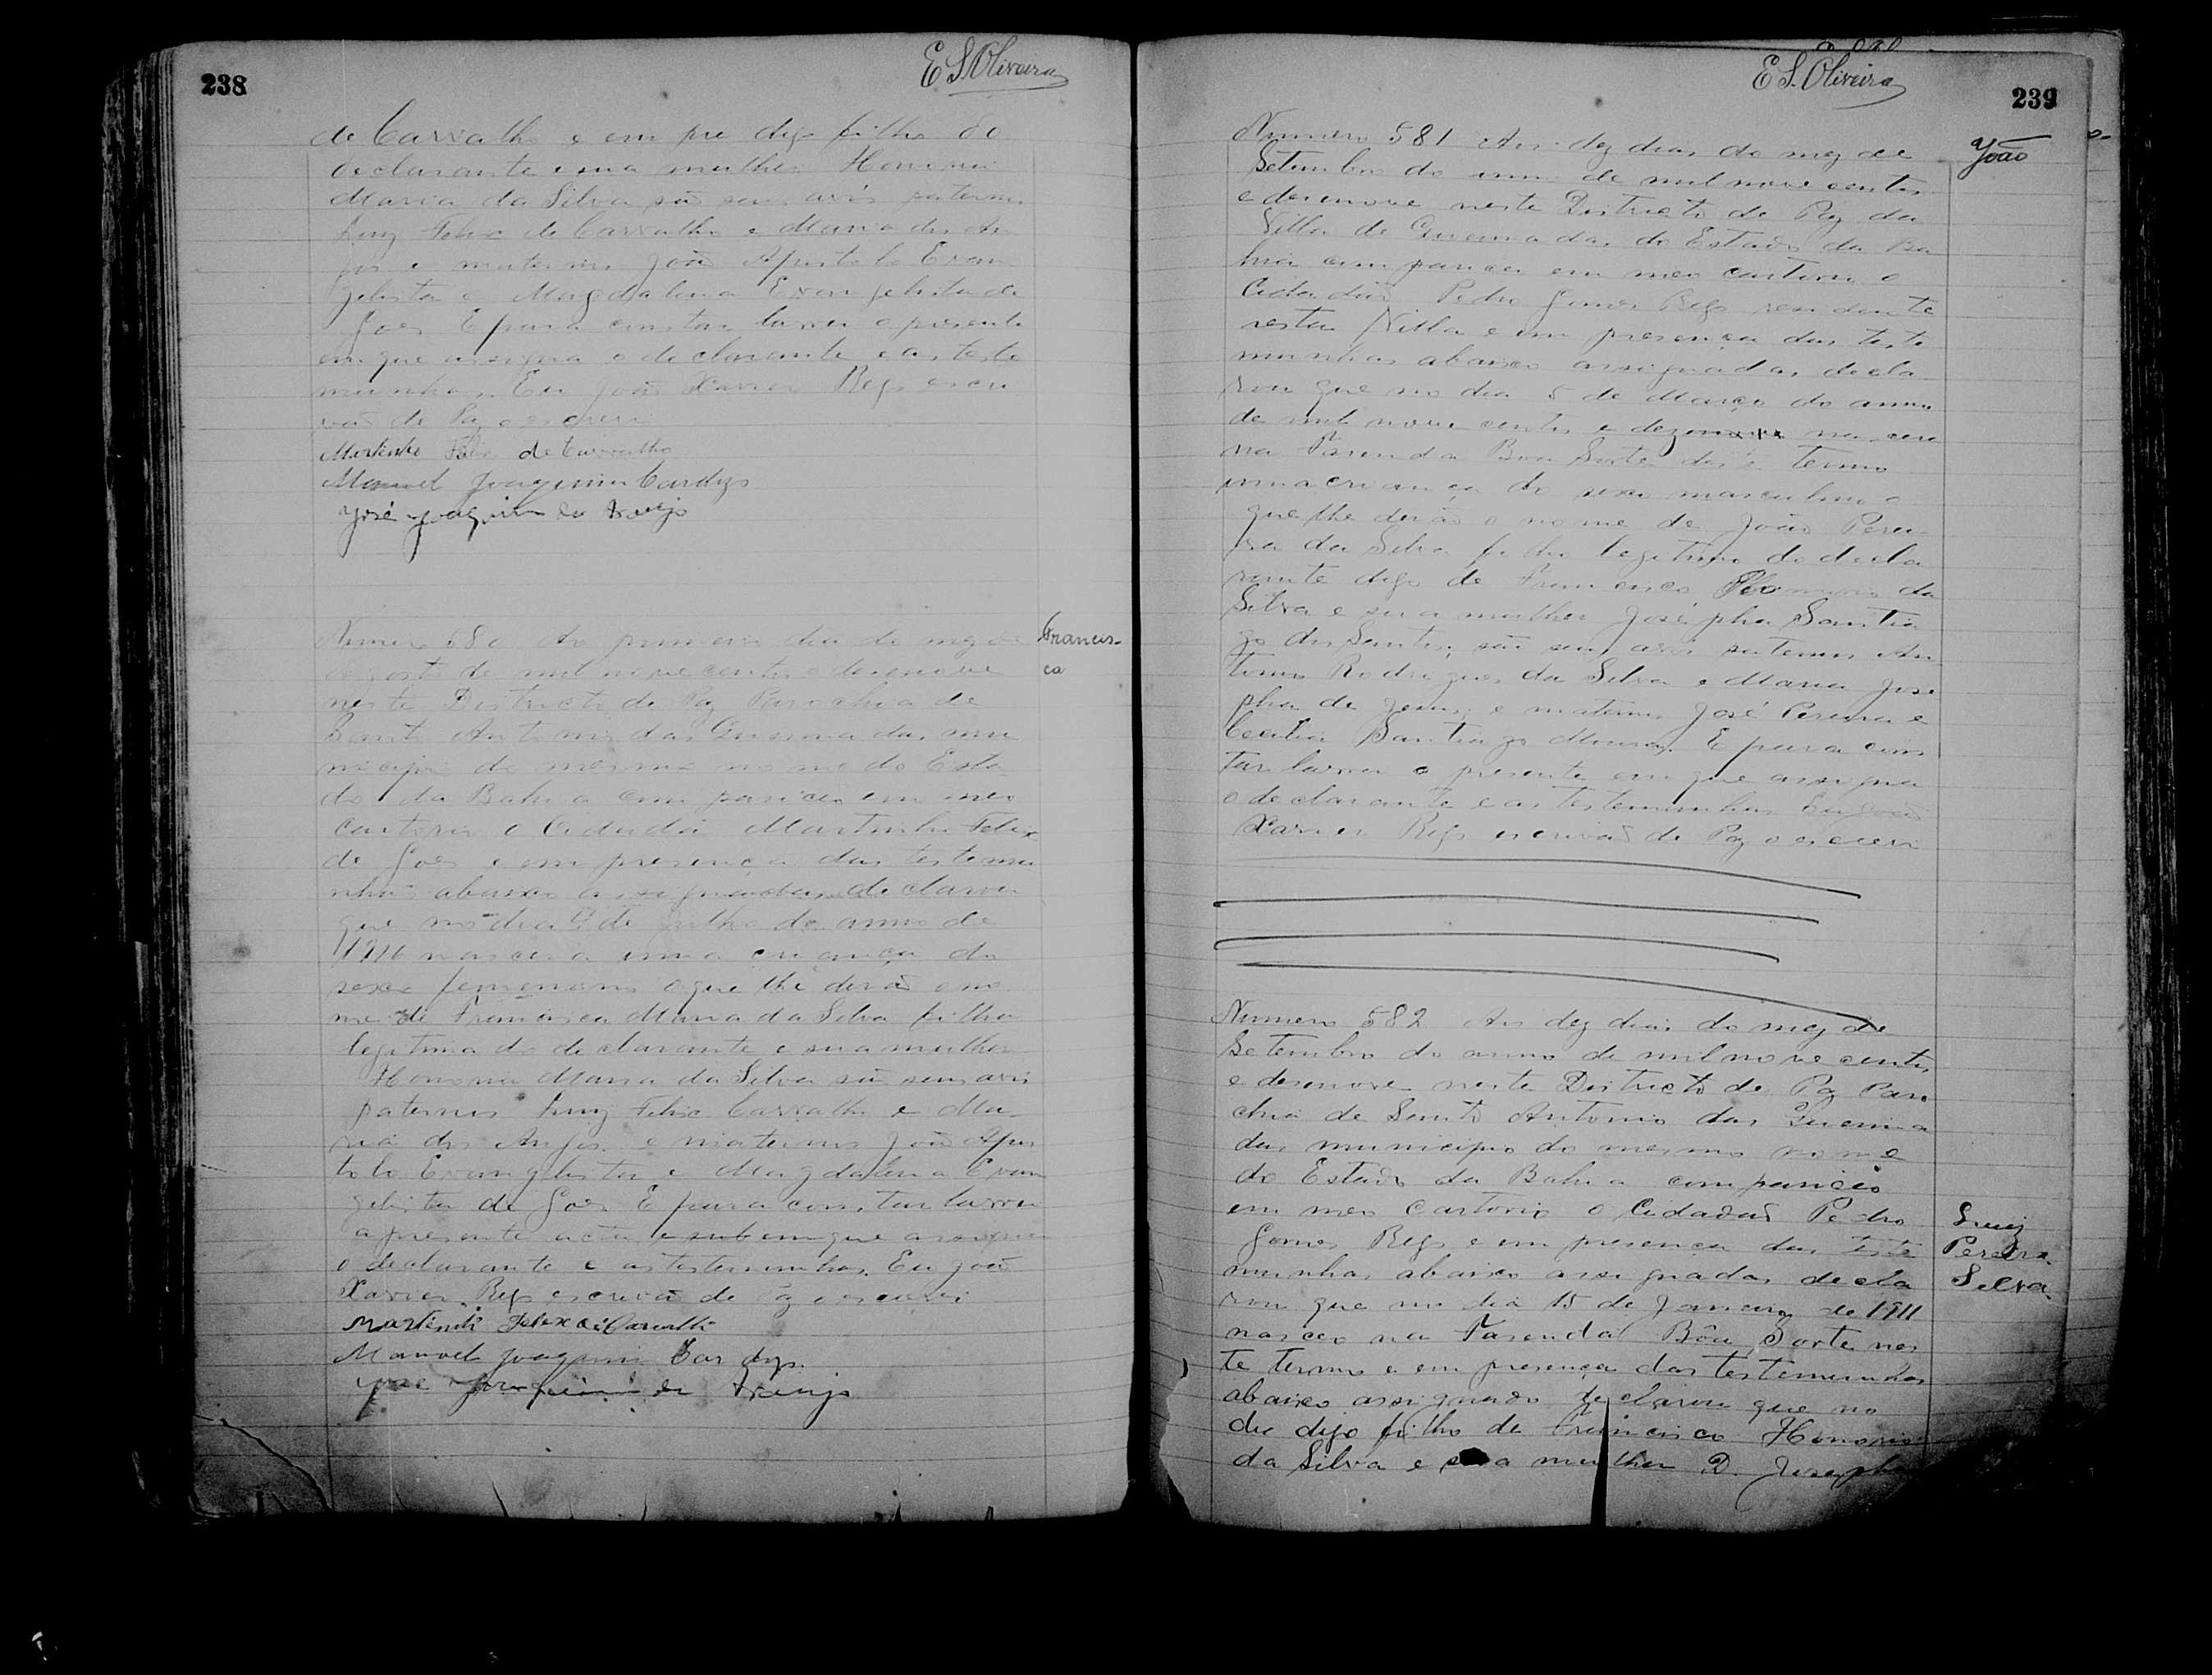 238
E S Oliveira
de Carvalho e em pre digo filho do
declarante e sua mulher Honoria
Maria da Silva são seus avós paternos
Luiz Felix de Carvalho e Maria dos An
jos e maternos João Apostolo Evan
gelista e Magdalena Evangelista de
Goes E para constar lavrei o presente
em que assigna o declarante e as teste
munhas. Eu João Xavier Rego escri
vão de Paz o escrevi
Martinho Felix de Carvalho
Manoel Joaquim Cardozo
José Joaquim de Araujo
Francis-
ca
Numero 580 Ao primeiro dia do mez de
Agosto de mil nove centos e desenove
neste Districto de Paz Parochia de
Santo Antonio das Queimadas mu
nicipio do mesmo nome do Esta
do da Bahia compareceu em meo
Cartorio o Cidadão Martinho Felix
de Goes e em presença das testemu
nhas abaixo assignadas declarou
que no dia de Julho do anno de
1916 nascera uma criança do
sexo femenino e que lhe derão o no
me de Francisca Maria da Silva filha
legitima do declarante e sua mulher
Honoria Maria da Silva são seus avós
paternos Luiz Felix Carvalho e Ma
ria dos Anjos. e maternos João Apos
tolo Evangelista e Magdalena Evan
gelista de Goes E para constar lavrei
a presente acta em que assigna
o declarante e as testemunhas. Eu João
Xavier Rego escrivão de Paz o escrevi
Martinho Felix de Carvalho
Manoel Joaquim Cardozo
José Joaquim de Araujo
E S. Oliveira
239
João
Numero 581 Aos dez dias do mez de
Setembro do anno de mil nove centos
e desenove neste Districto de Paz da
Villa de Queimadas do Estado da Ba
hia compareceu em meo cartorio o
Cidadão Pedro Gomes Rego residente
nesta Villa e em presença das teste
munhas abaixo assignadas decla
rou que no dia 5 de Março do anno
de mil nove centos e dez nascera
na Fasenda Boa Sorte deste termo
uma criança do sexo masculino e
que lhe derão o nome de João Perei
ra da Silva filho legitimo do decla
rante digo de Francisco Honorio da
Silva e sua mulher Josépha Santia
go dos Santos, são seus avós paternos An
tonio Rodrigues da Silva e Maria Jose
pha de Jesus; e maternos José Pereira e
Cecilia Santiago Moura. E para cons
tar lavrei o presente em que assigna
o declarante e as testemunhas Eu João
Xavier Rego escrivão de Paz o escrevi
Numero 582 Aos dez dias do mez de
Setembro do anno de mil nove centos
e desenove neste Districto de Paz Paro
chia de Santo Antonio das Queima
das municipio do mesmo nome
do Estado da Bahia compareceo
em meo Cartorio o Cidadão Pedro
Gomes Rego e em presença das teste
munhas abaixo assignadas decla
rou que no dia 15 de Janeiro de 1911
nasceo na Fasenda Bôa Sorte nes
te termo e em presença das testemunhas
abaixo assignado declarou que no
dia digo filho de Francisco Honorio
da Silva e sua mulher D. Josepha
Luiz
Pereira
Silva